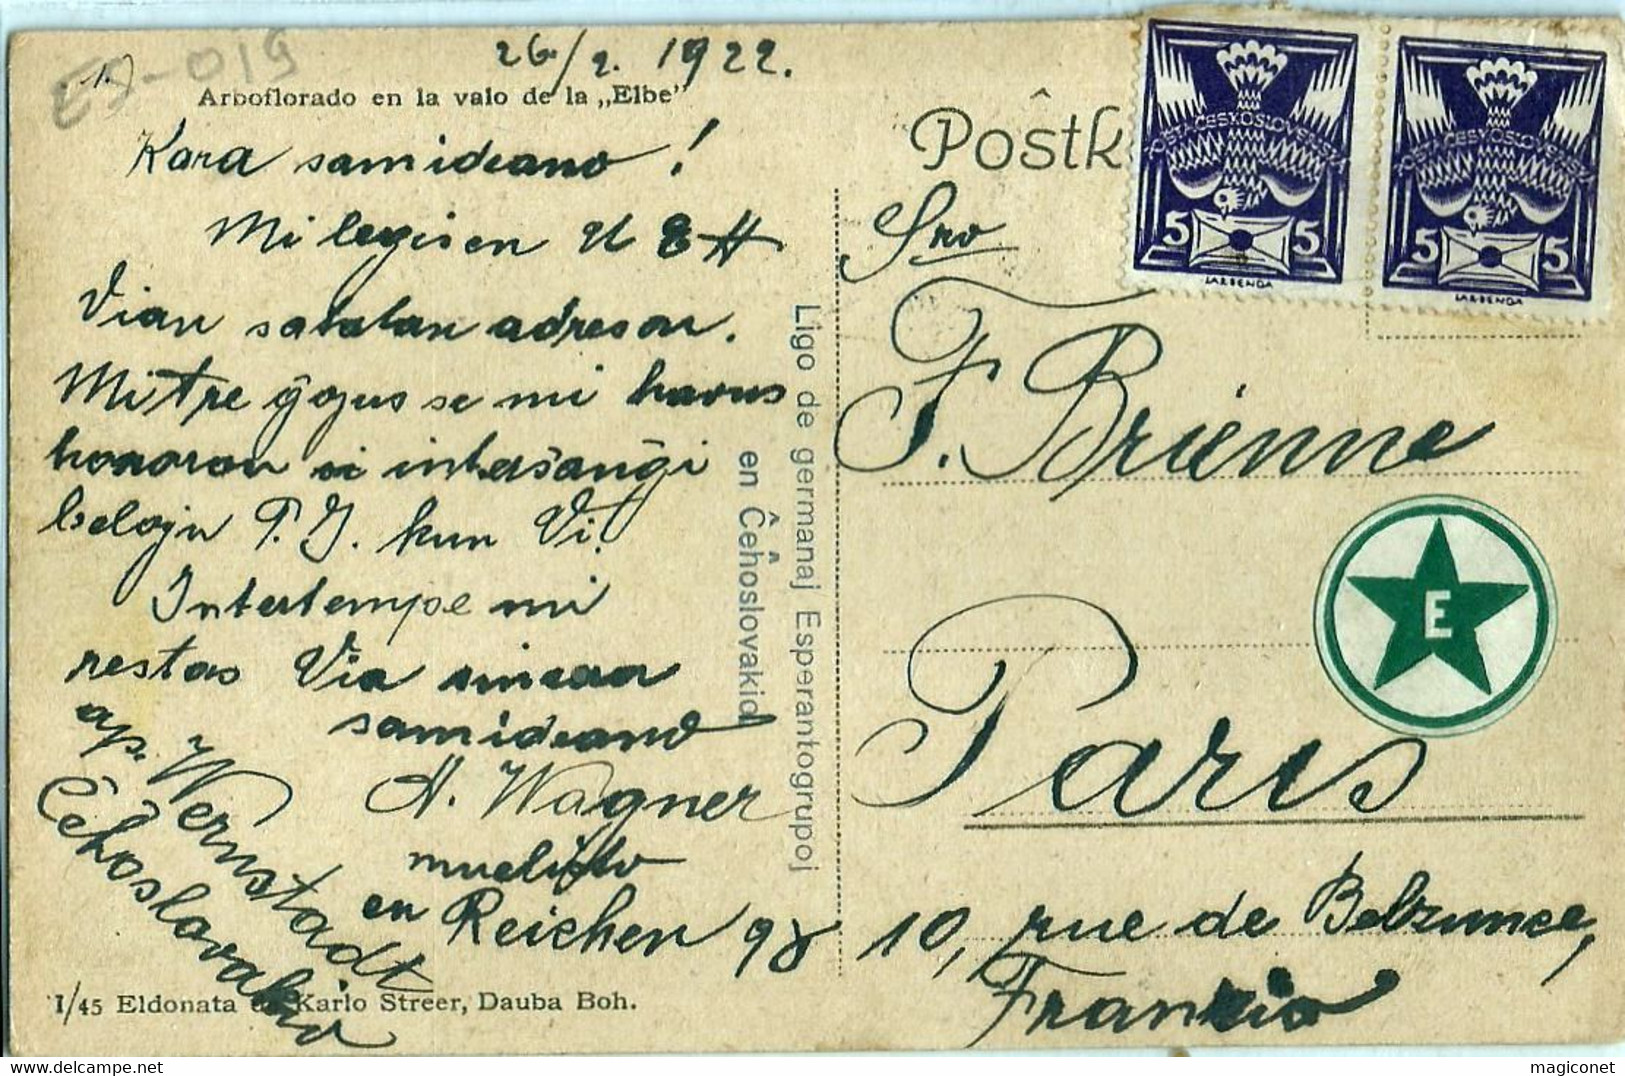 E3-019
26/2. 1922.
Arboflorado en la valo de la „Elbe”
Kara samideano!
Mi legis en
Vian ŝatatan adreson.
Mi tre ĝojus se mi havus
honoron si interŝanĝi
belajn P.I. kun Vi.
Intertempe mi
restas Via sincera
samideano
A. Wagner
muelisto
en Reichen 98
ap. Wernstadt
Ĉeĥoslovakio
I/45 Eldonata Karlo Streer, Dauba Boh.
Ligo de germanaj Esperantogrupoj
en Ĉeĥoslovakio
Poŝtk
POŠTA ČESKOSLOVENSKÁ
5 5
POŠTA ČESKOSLOVENSKÁ
5 5
Sro
F. Brienne
E
Paris
10, rue de Belzunce,
Francio
magiconet